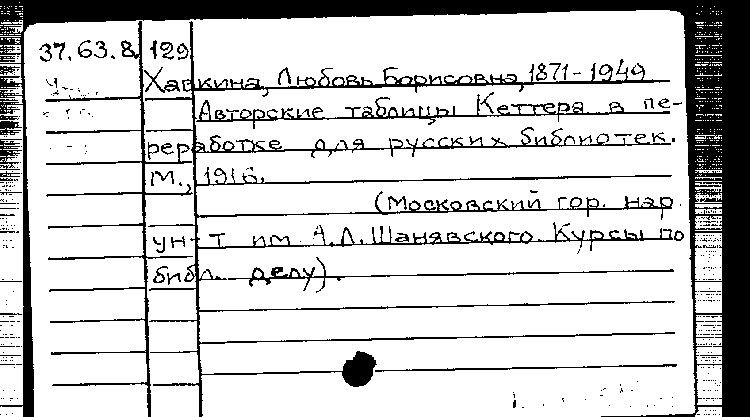 37.63.8. 129
Хавкина, Любовь Борисовна, 1871-1949
Авторские таблицы Кеттера в пе-
реработке для русских библиотек.
М., 1916.
(Московский гор. нар.
ун-т им А.Л. Шанявского. Курсы по
библ. делу).